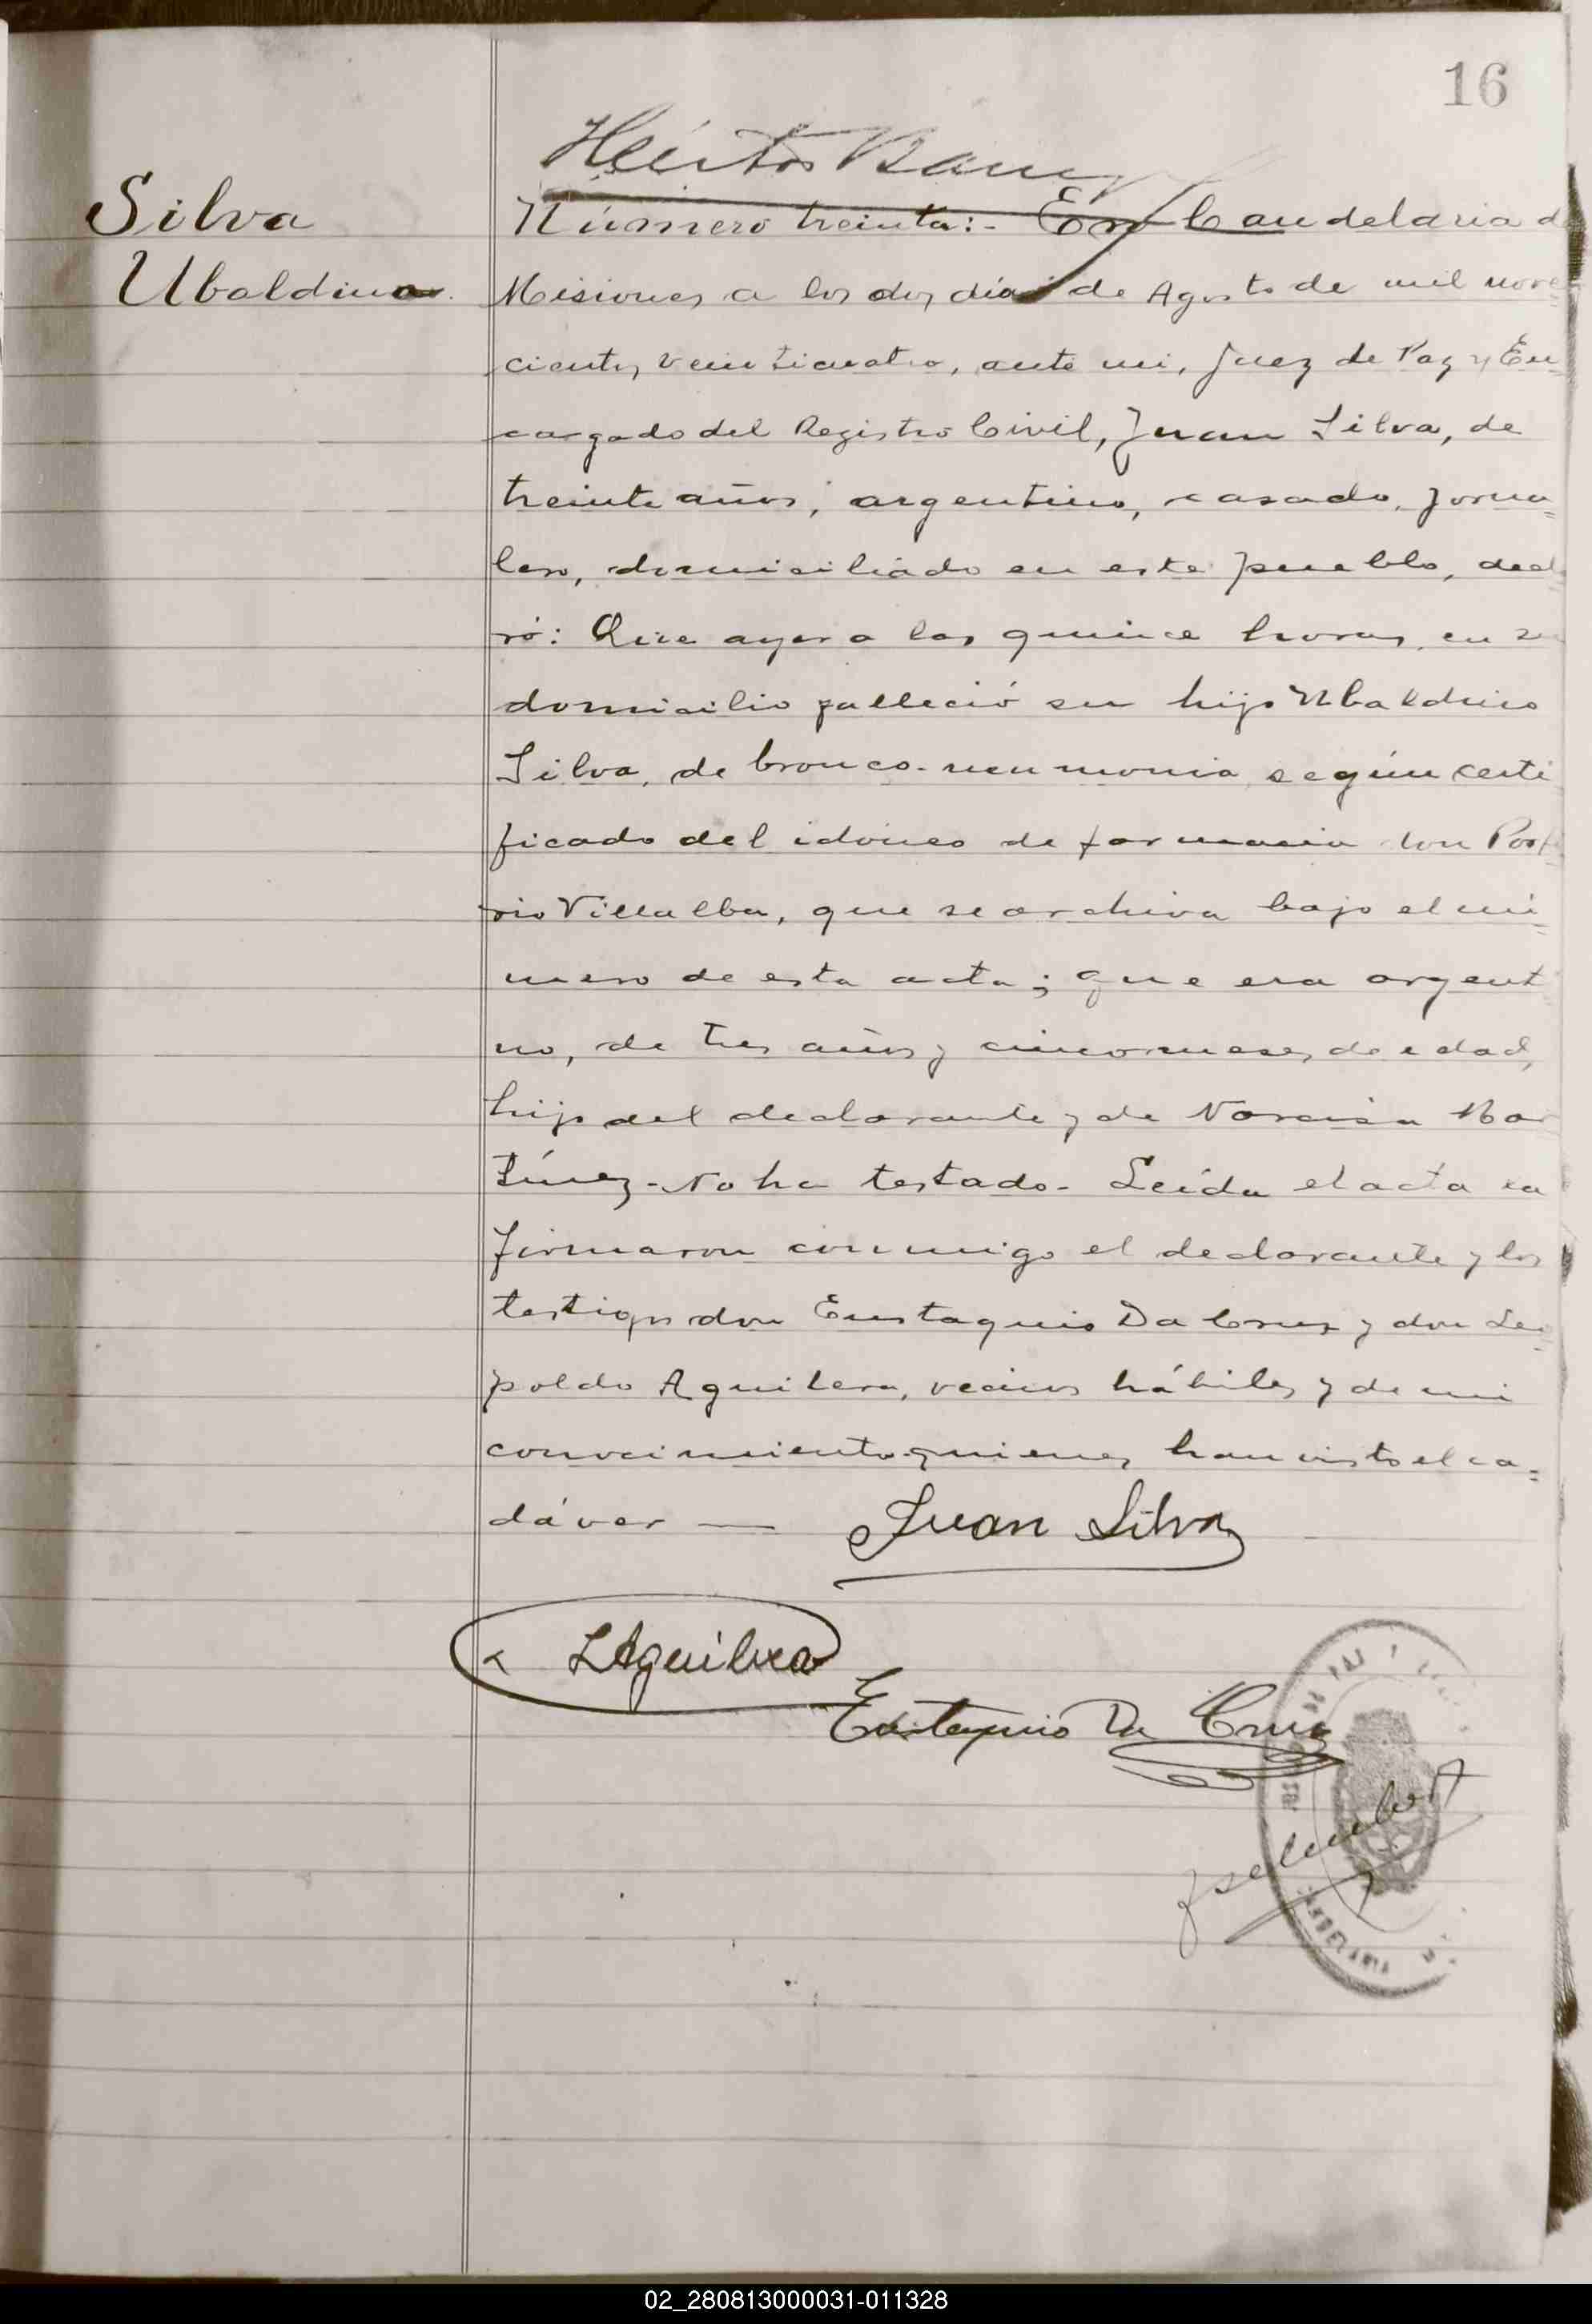 16
Silva
Ubaldino
Número treinta:- En Candelaria d
Misiones a los dos días de Agosto de mil nove=
cientos veinticuatro, ante mi, Juez de Paz y En=
cargado del Registro Civil, Juan Silva, de
treinta años, argentino, casado, jorna=
lero, domiciliado en este pueblo, decl
ró: Que ayer a las quince horas, en su
domicilio falleció su hijo Ubaldino
Silva, de bronco-neumonia, según certi
ficado del idóneo de farmacia don Porf
rio Villalba, que se archiva bajo el nú=
mero de esta acta; que era argent
no, de tres años y cinco meses de edad,
hijo del declarante y de Narcisa Mar
tínez.- No ha testado.- Leída el acta la
firmaron conmigo el declarante y los
testigos don Eustaquio Da Cruz y don Leo=
poldo Aguilera, vecinos hábiles y de mi
conocimiento quienes han visto el ca=
dáver —
Juan Silva
LAguilera
Eustaquio Da Cruz
CANDELARIA
02_280813000031-011328